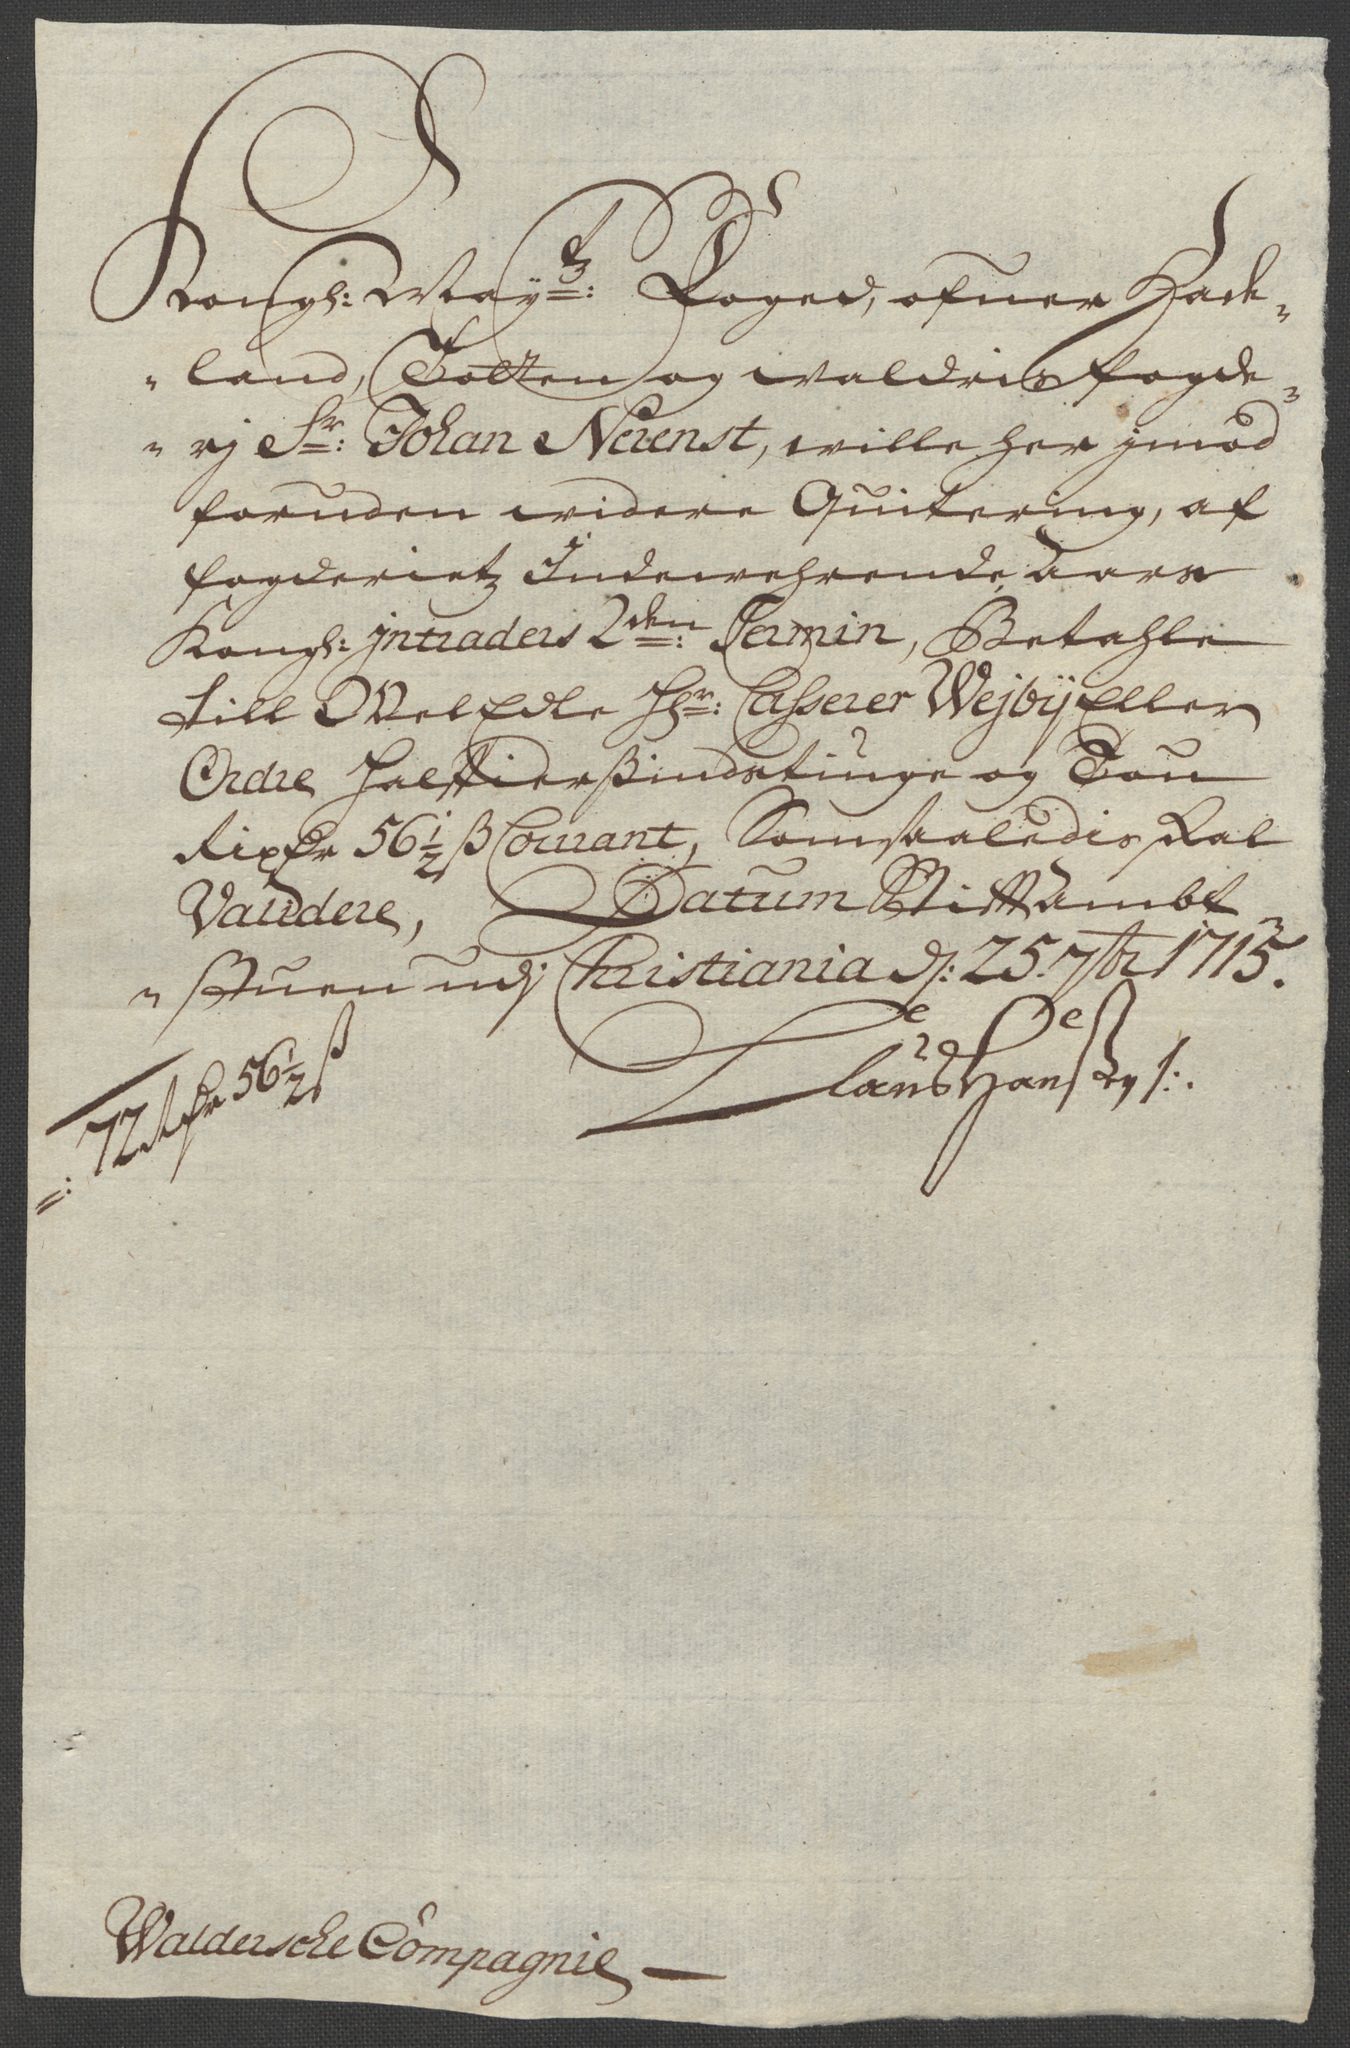 Kongl: May:tz Foged, ofuer Hade-
land, Totten og Waldris fogde-
rj Sr: Johan Neuenst, wille her jmod
foruden widere Quitering, af
fogderietz Indewehrende Aars
Kongl: jntraders 2den: Termin, Betahle
till WelEdle Hr: Casserer Wejbÿ Eller
Ordre Halffierssindstiuge og Tou
Rixdr 56½ ß Courant, Som saaledis skal
Vaudere, Datum Stiftambt
stuen udj Christiania dj: 25. 7br 1715.
72 Rdr 56½ ß
Claus Hans
Waldersche Compagnie